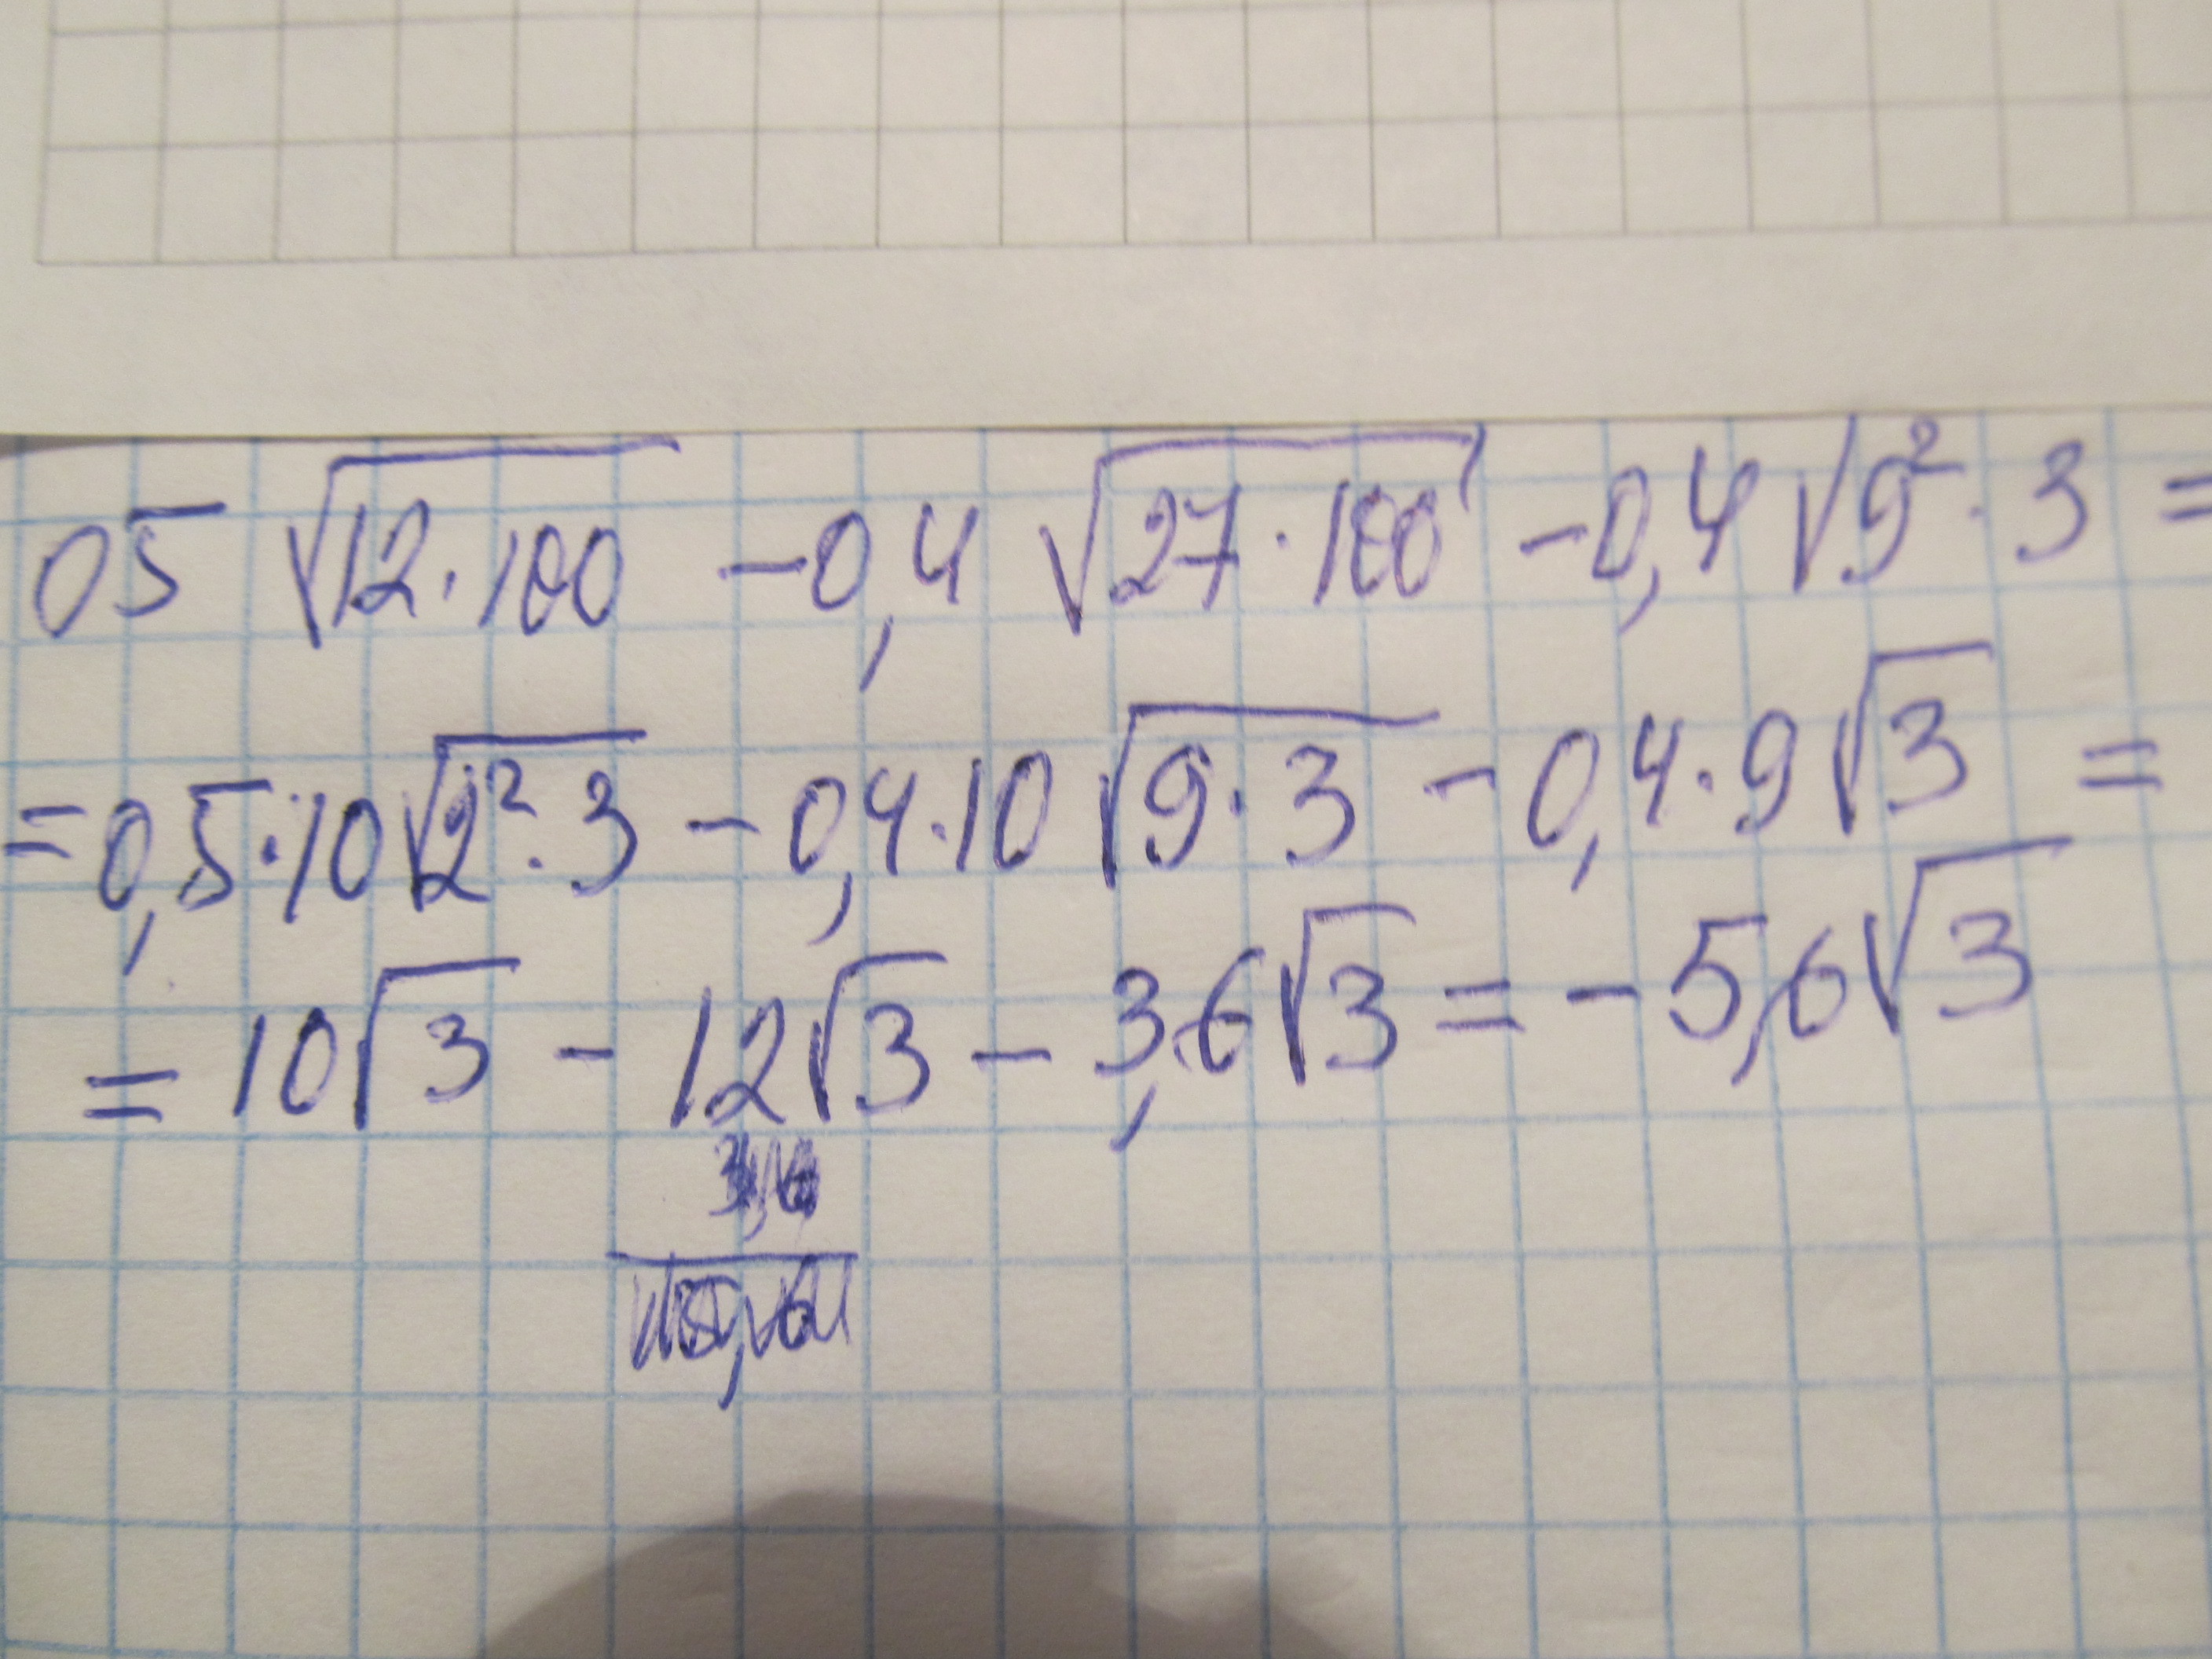 05 √12·100 - 0,4 √27·100 - 0,4 √9²·3 =
= 0,5·10√2²·3 - 0,4·10√9·3 - 0,4·9√3 =
= 10√3 - 12√3 - 3,6√3 = - 5,6√3